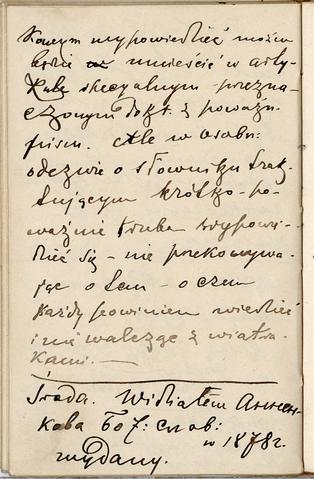 Kowym wypowiedzieć można
będzie umieścić w arty-
kule specyalnym - przezna-
czonym dokt. z poważn.
pism. Ale w osobn:
odezwie o słowniku trak-
tującym krótko - po-
ważnie trzeba wypowie-
dzieć się - nie przekonywa-
jąc o tem - o czem
każdy powinien wiedzieć
i nie walcząc z wiatra-
kami. —
Środa. Widziałem Аннен-
кова Бот: слов:
в 1878 г.
wydany.